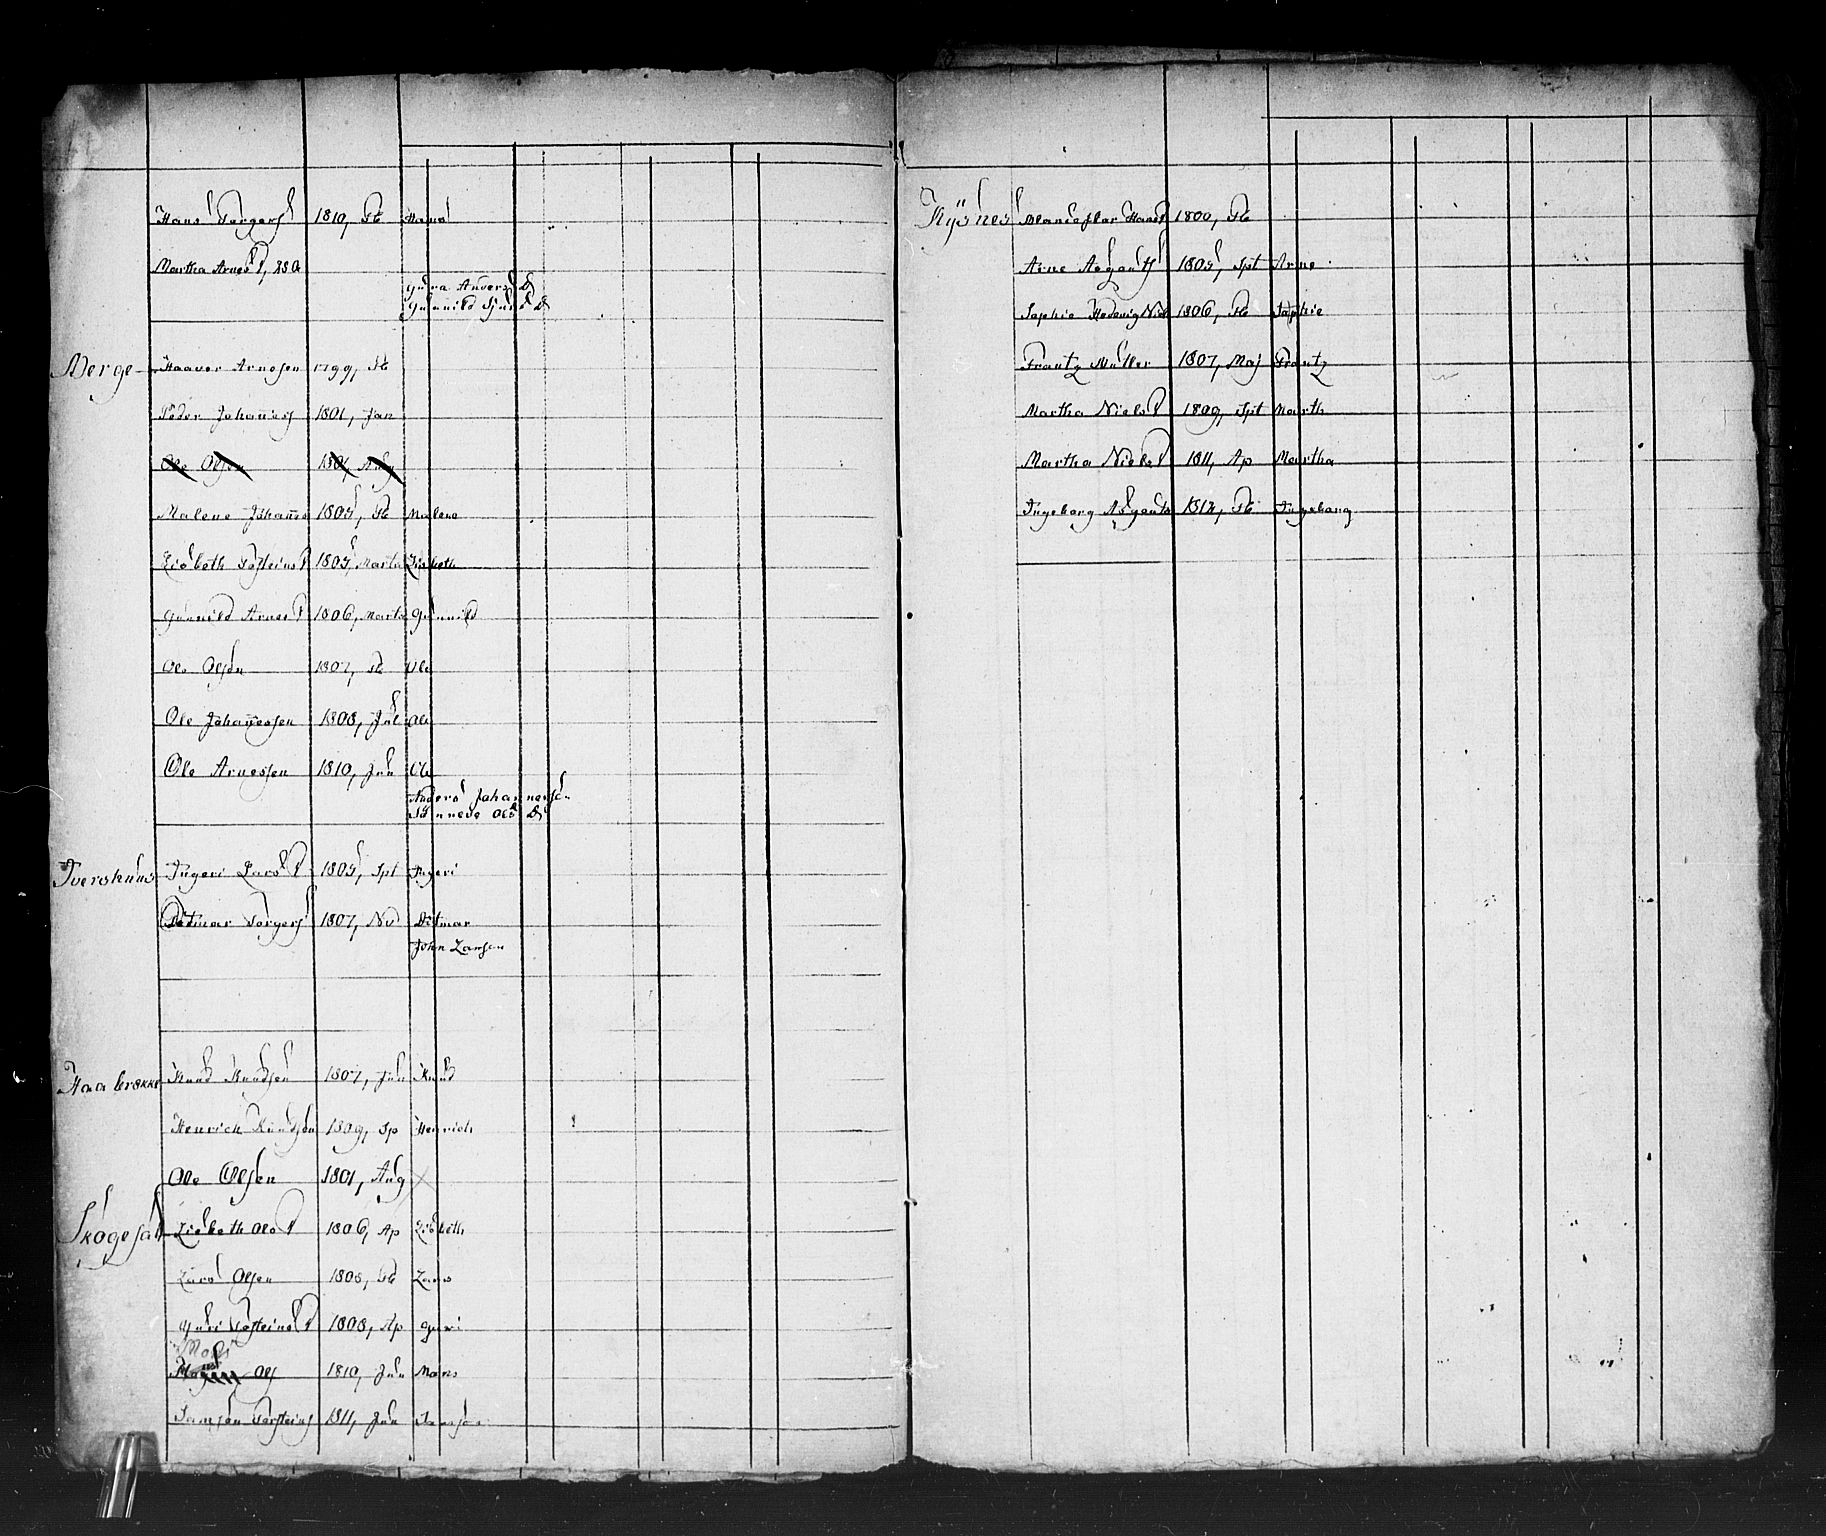 Hans Torgers 1810, Fb Hans
Martha Arnes D, 280
Gura Anders D
Gunnild Sjurs D
Berge Haaver Arnesen 1799, Fb
Peder Johaness 1801, Jan
Ole Olsen 1801, Aug
Malene Johanes 1805, Fb Malene
Lisbeth Tosteins D 1805, Marts Lisbeth
Gunnild Arnes D 1806, Marts Gunnild
Ole Olsen 1807, Fb Ole
Ole Johanessen 1808, Jul Ole
Ole Arnessen 1810, Jun Ole
Anders Johannessen
Sünneve Ols D
Tverskuus Ingeri Lars D 1805, Spt Ingeri
Ditmar Torgers 1807, Nv Ditmar
John Larsen
Haabrække Knud Knudsen 1807, Jun Knud
Henrich Knudsen 1809, Sp Henrich
Ole Olsen 1801, Aug
Skogesal Lisbeth Ols D 1806, Ap Lisbeth
Lars Olsen 1808, Fb Lars
Guri Tosteins D 1808, Ap Guri
Mons
Ols 1810, Jun Mons
Samson Torsteins 1811, Jun Samson
Kysnes Hans D 1800, Fb
Arne Asgauts 1805, Spt Arne
Sophie Hedevig Niels 1806, Fb Sophie
Frantz Müller 1807, Maj Frantz
Martha Niels D 1809, Spt Marth
Martha Niels D 1811, Ap Martha
Ingeborg Asgauts 1812, Fb Ingeborg